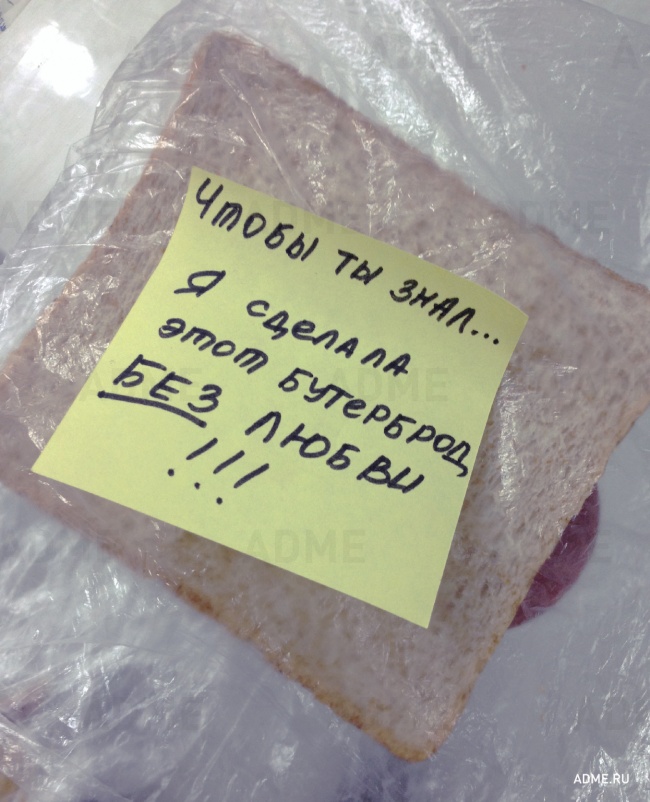 Чтобы ты знал...
Я сделала
этот бутерброд
БЕЗ любви
!!!
ADME
ADME.RU